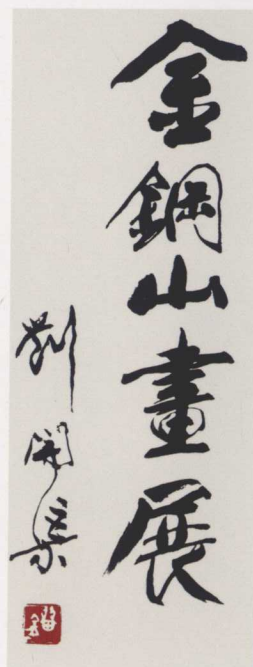 金鋼山畫展
劉開渠